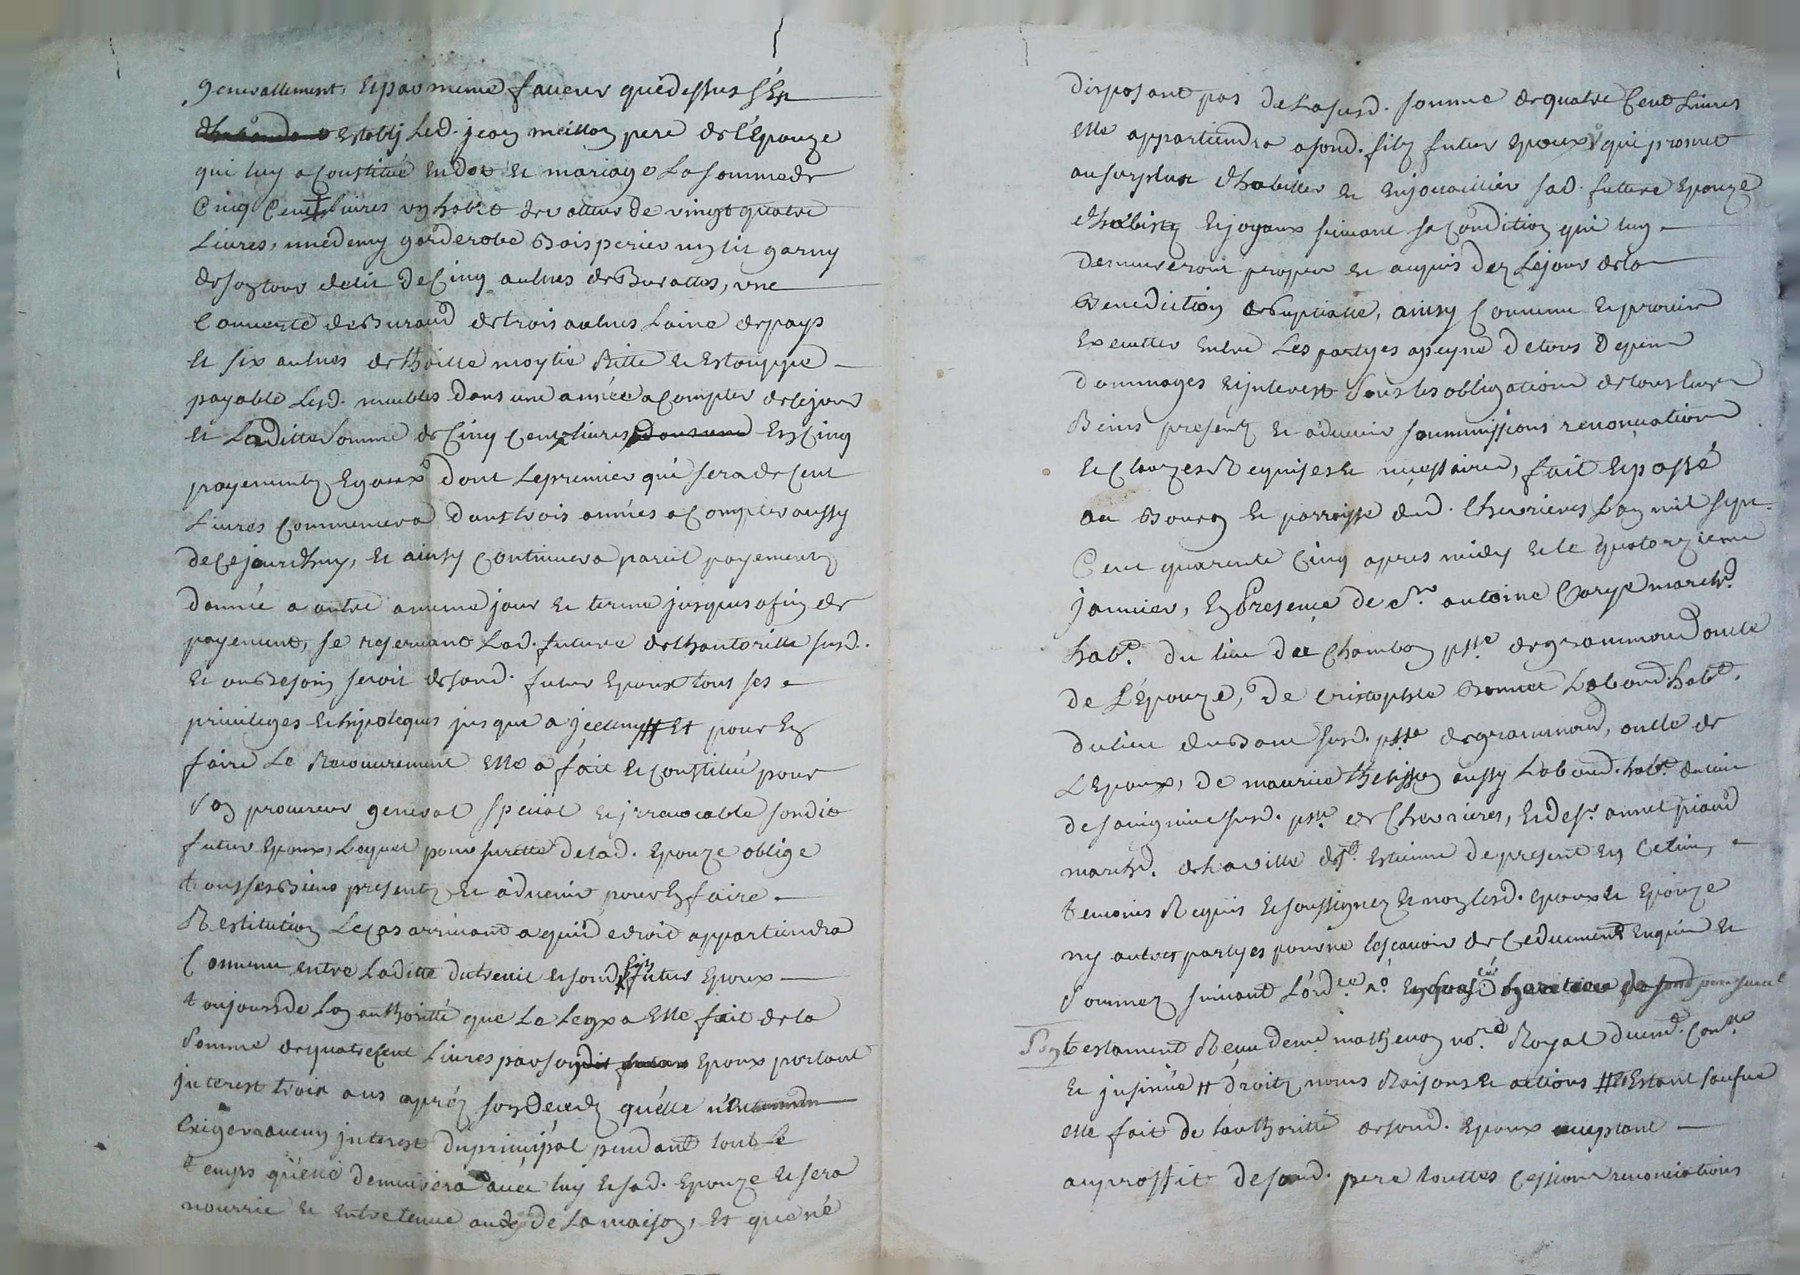 generallement, et par meme faveur que dessus s'Est
establj led. jean meillon pere de l'Epouze
qui luy a Constitué en dot et mariage La somme de
Cinq Cent livres un habit de valleur de vingt quatre
Livres, une demy garderobe Bois perier un lit garny
de son tour de lit de Cinq aulnes de Burattes, une
Couverte de Buraud de trois aulnes Laine de pays
et six aulnes de thoille moytié Ritte et Estouppe
payable Lesd. meubles dans une année a Compter de ce jour
et Laditte somme de Cinq Cent livres En Cinq
payements Egaux dont le premier qui sera de Cent
Livres Commencera dans trois années a Compter aussy
de Cejourdhuy, et ainsy Continuera pareil payement
d'année a autre a meme jour et terme jusques a fin de
payement, se reservant Lad. future de lhautoritté susd.
et au Besoin seroit de sond. futur Epoux tous ses
privileges et hipoteques jusque a jcelluy # Et pour En
faire le Recouvrement Elle a fait et Constitué pour
son procureur general special et jrrevocable sondit
futur Epoux, Lequel pour suretté de lad. Epouze oblige
tous ses Biens presents et advenir pour En faire
Restitution le Cas arrivant a qui de droit appartiendra
Convenu entre Laditte dutreuil et sond. fils futur Epoux
toujours de son authoritté que Le legs a Elle fait de la
somme de quatre Cent Livres par son Epoux portant
jnterest trois ans apres son Deceds qu'elle n'
Exigera aucun jnterest du principal pendant tout le
temps qu'elle demeurera avec luy et sad. Epouze et sera
nourrie et entretenue aux de La maison, Et que ne
disposant pas de La susd. somme de quatre Cent Livres
elle appartiendra a sond. fils futur Epoux qui promet
au surplus d'habiller et Enjouailler sad. future Epouze
d'habits et joyaux suivant sa Condition qui luy
demeureront propres et acquis dez le jour de la
Benediction Nuptialle, ainsy Convenu et promis
Executter entre Les partyes a peyne de tous depens
dommages et jnterest sous les obligations de tous leurs
Biens presents et advenir soummissions renonciations
et Clauzes Requises et necessaires, fait et passé
au Bourg et parroisse dud. Chevrieres Lan mil sept
Cent quarente Cinq apres midy et le quatorzieme
janvier, En Presence de Sr. antoine marchd.
habt. du lieu du Chambon psse de grammond oncle
de L'Epouze, de cristophle Bonnet Labourd. habt.
du lieu du susd. psse de grammond, oncle de
L'Epoux, de maurice Thelisson aussy Labourd. habt. du lieu
de susd. psse de Chevrieres, Et de Sr. annet piaud
marchd. de la ville de St. Estienne de present En Ce lieu,
temoins Requis et soussignez et non lesd. epoux et Epouze
ny autres partyes pour ne le scavoir de Ce duement Enquis et
sommez suivant L'ordce.
Son testament Receu demt. mathevon nore. Royal duemt. Conté
et jnsinué # droits noms Raisons et actions # Estant sauf ce
elle fait de lauthoritté de sond. Epoux acceptant
au proffit de sond. pere touttes Cessions renonciations